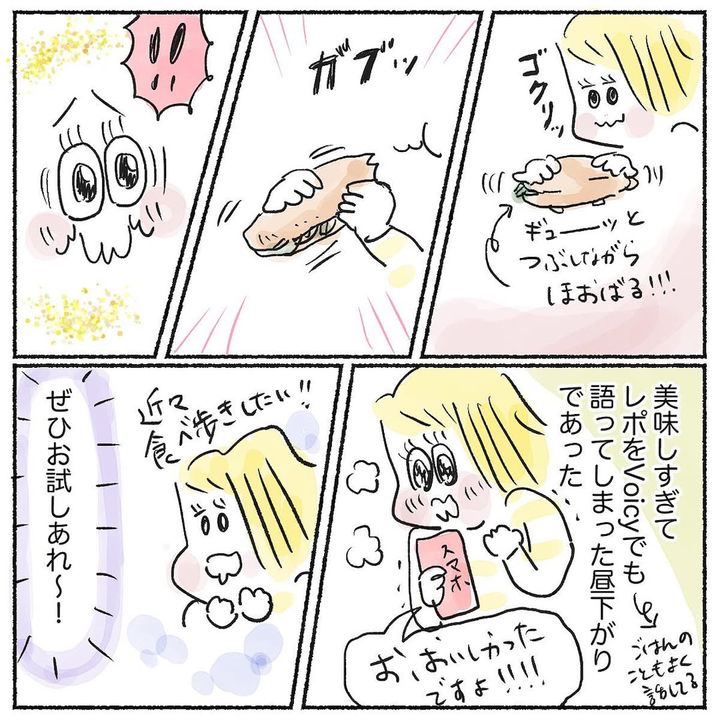 ゴクリッ
ギューーッと
つぶしながら
ほおばる!!!
ガブッ
!!
美味しすぎて
レポをVoicyでも
語ってしまった昼下がり
であった
ごはんの
こともよく
話してる
スマホ
お、おいしかった
ですよ!!!!
近々
食べ歩きしたい!!
ぜひお試しあれ〜!